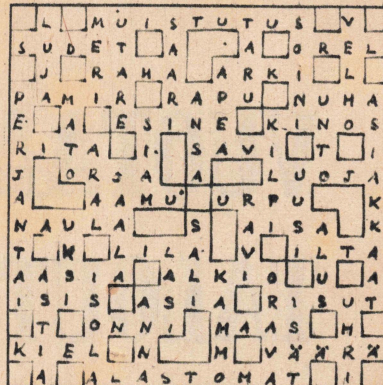 L MUISTUTUS V
SUDET A A OREL
J RAHA ARKI L
PAMIR RAPU NUHA
E A ESINE KINOS
RITA I SAVI T I
J ORJA A LUOJA
A AAMU URPU K
NAULA S AISA K
T K LILA V ILTA
AASIA ALKIO U A
ISIS ASIA RISUT
T ONNI MAAS M
KIEL N M VÄÄRÄ
A ALASTOMAT I